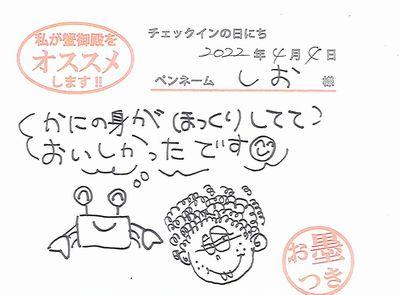 私が蟹御殿を
オススメ
します!!
チェックインの日にち
2022年4月4日
ペンネーム しお 様
かにの身がほっくりしてて
おいしかったです
お墨
つき